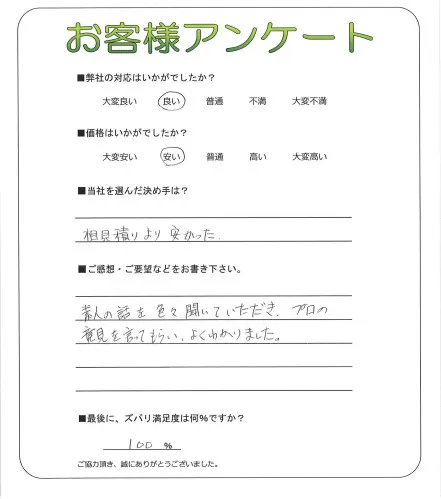 お客様アンケート
■弊社の対応はいかがでしたか？
大変良い 良い 普通 不満 大変不満
■価格はいかがでしたか？
大変安い 安い 普通 高い 大変高い
■当社を選んだ決め手は？
相見積りより安かった.
■ご感想・ご要望などをお書き下さい。
素人の話を色々聞いていただき、プロの
意見を言ってもらい、よくわかりました。
■最後に、ズバリ満足度は何％ですか？
100 %
ご協力頂き、誠にありがとうございました。